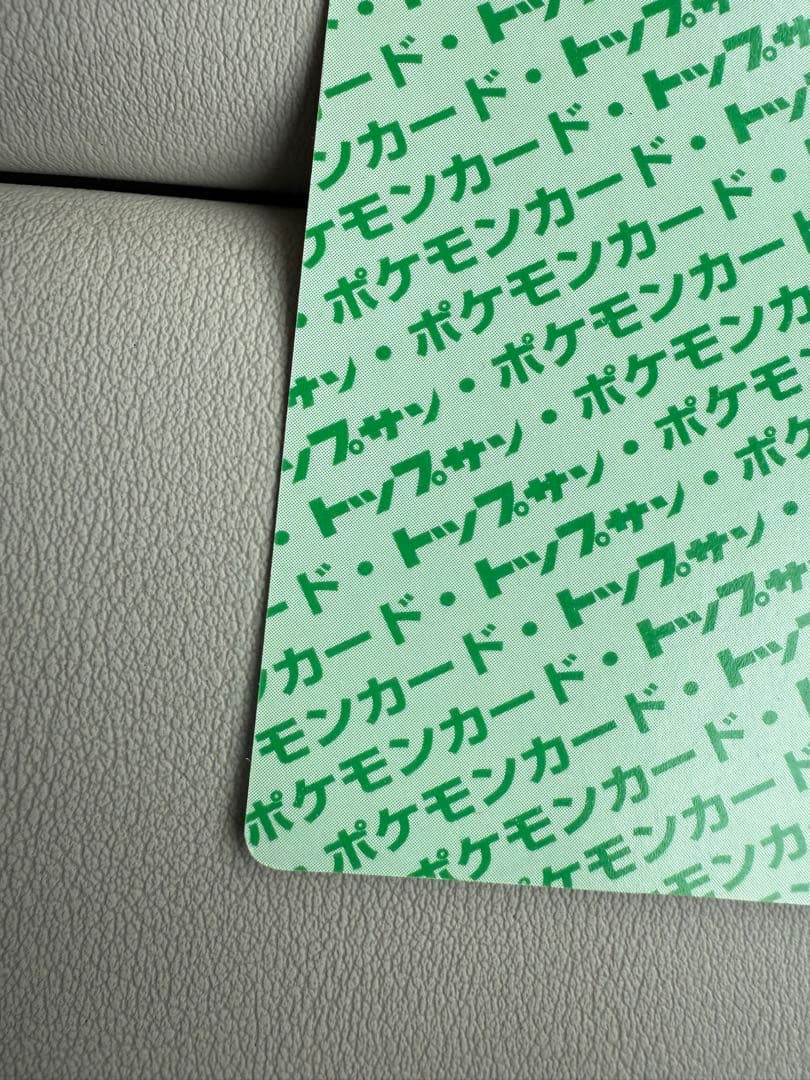 ード・トップサン
ンカード・トップサ
ケモンカード・トップサ
・ポケモンカード・トッ
サン・ポケモンカード・
ップサン・ポケモンカード
・トップサン・ポケモンカ
ード・トップサン・ポケモ
ンカード・トップサン・ポケ
モンカード・トップサン・
ポケモンカード・トップサ
ポケモンカード・トッ
ポケモンカード・
ケモンカード
モンカ